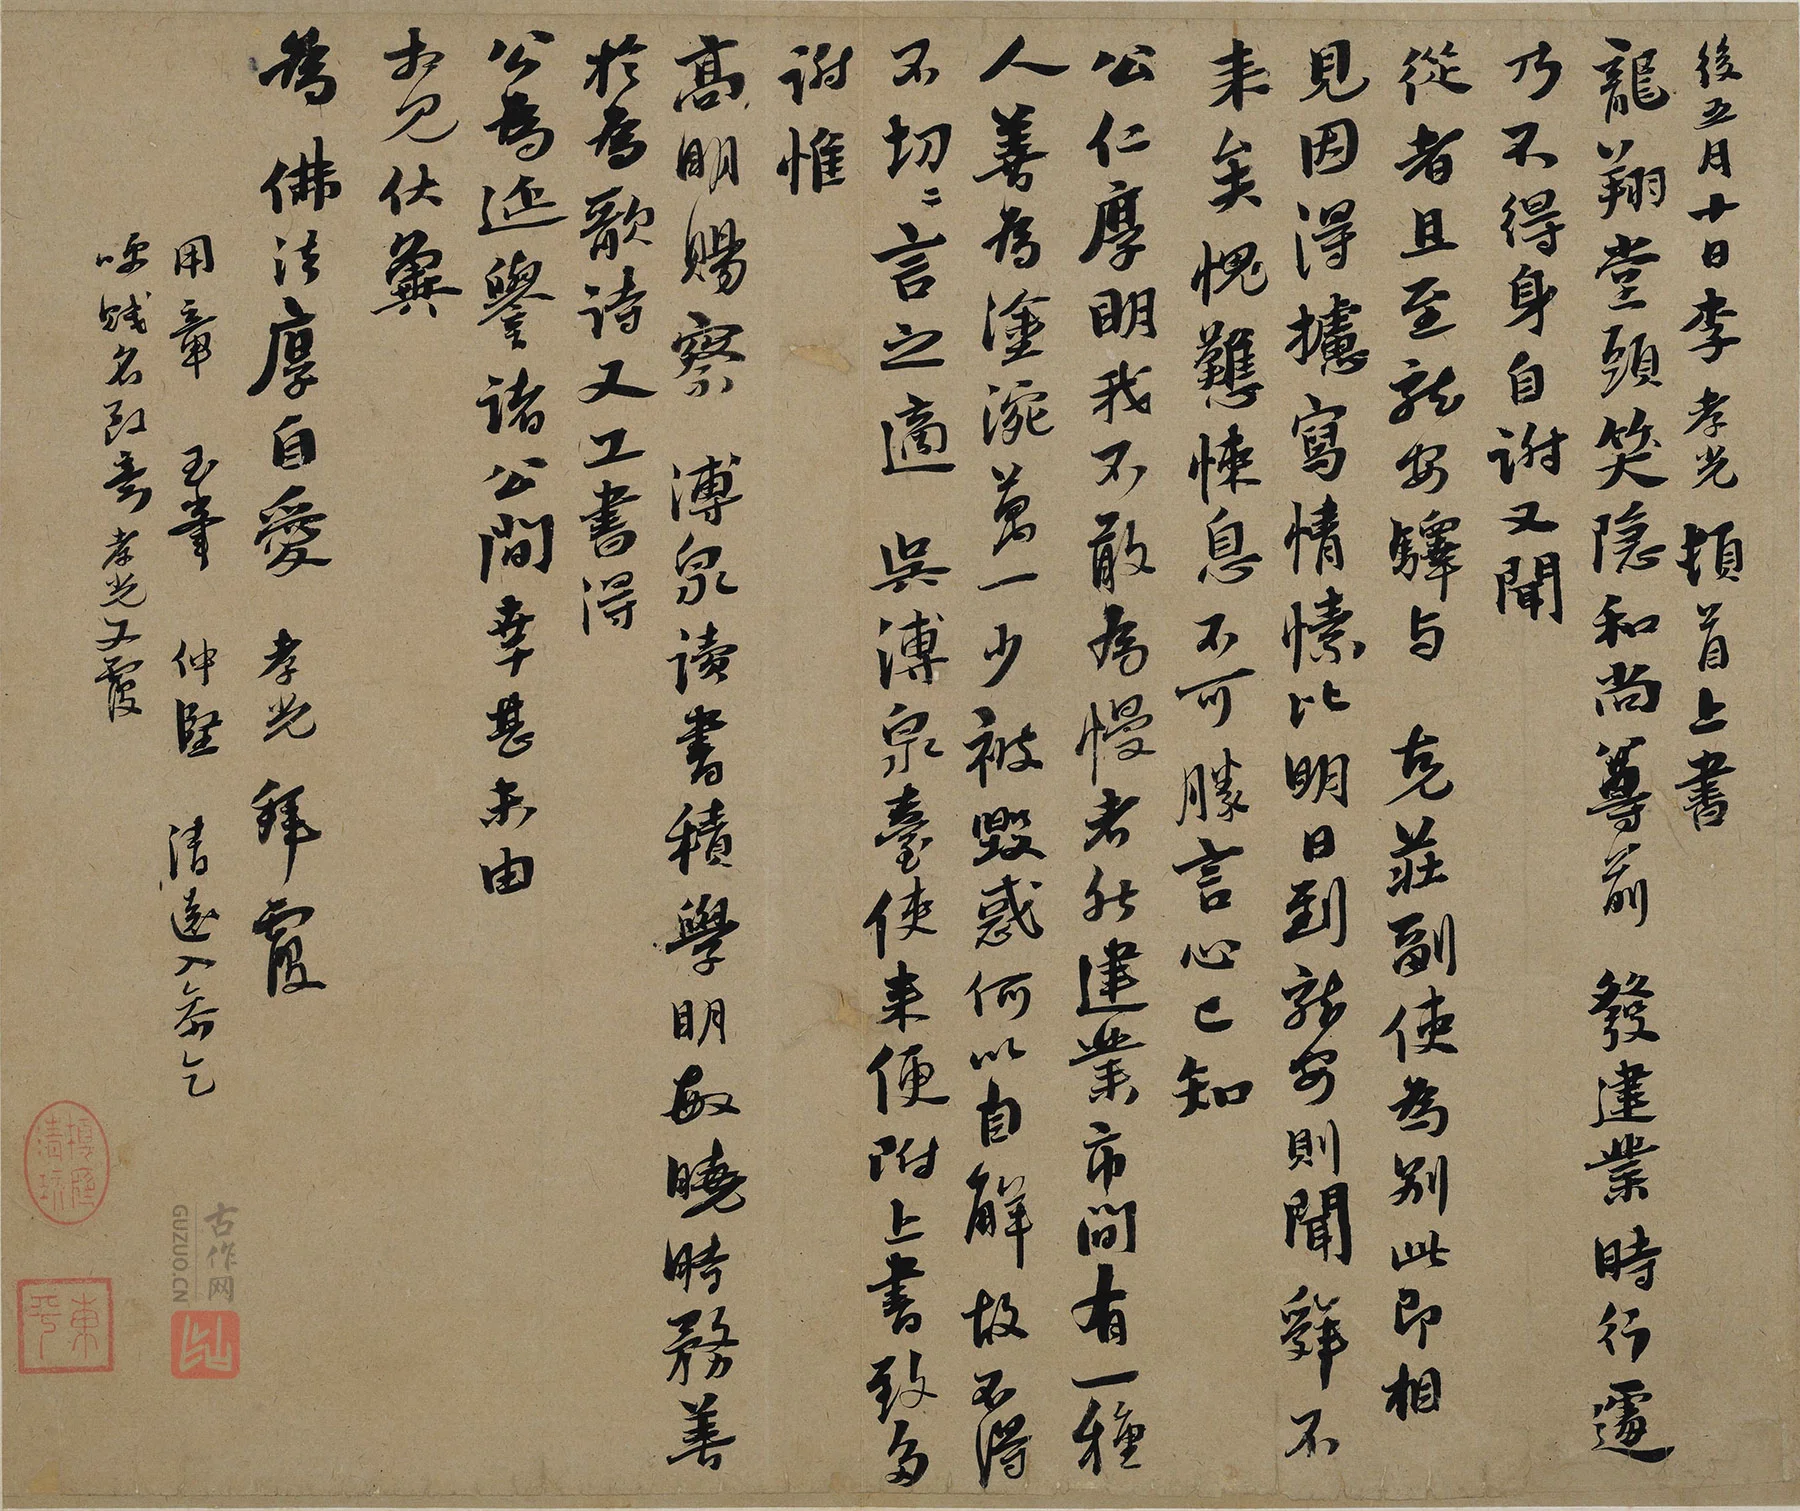 後五月十日李孝光頓首上書
龍翔堂頭笑隱和尚尊前 發建業時行遽
乃不得身自謝又聞
從者且至龍安驛与 克莊副使為別此即相
見因得攄寫情愫比明日到龍安則聞舜不
来矣愧難悚息不可勝言心已知
公仁厚明我不敢為慢者然建業市間有一種
人善為塗涴萬一少被毀惑何以自解故不得
不切二言之適 吳溥泉臺使来便附上書致多
謝惟
高明賜察 溥泉读書積學明敏曉時務善
於為歌诗又工書得
公為延譽諸公間幸甚未由
相見伏冀
為佛法厚自愛 孝光拜覆
用章 玉峯 仲堅 清遠入希乞
呼賤名致意孝光又覆
東平
古作网
GUZUO.CN